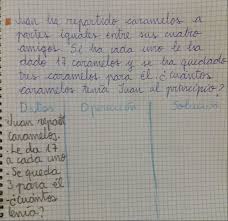 Juan ha repartido caramelos a
partes iguales entre sus cuatro
amigos. Si ha cada uno le ha
dado 17 caramelos y se ha quedado
tres caramelos para él. ¿cuántos
caramelos tenía Juan al principio?
Datos Operación Solución
Juan repart
caramelos.
- Le da 17
a cada uno
- Se queda
3 para él
- ¿cuántos
tenía?